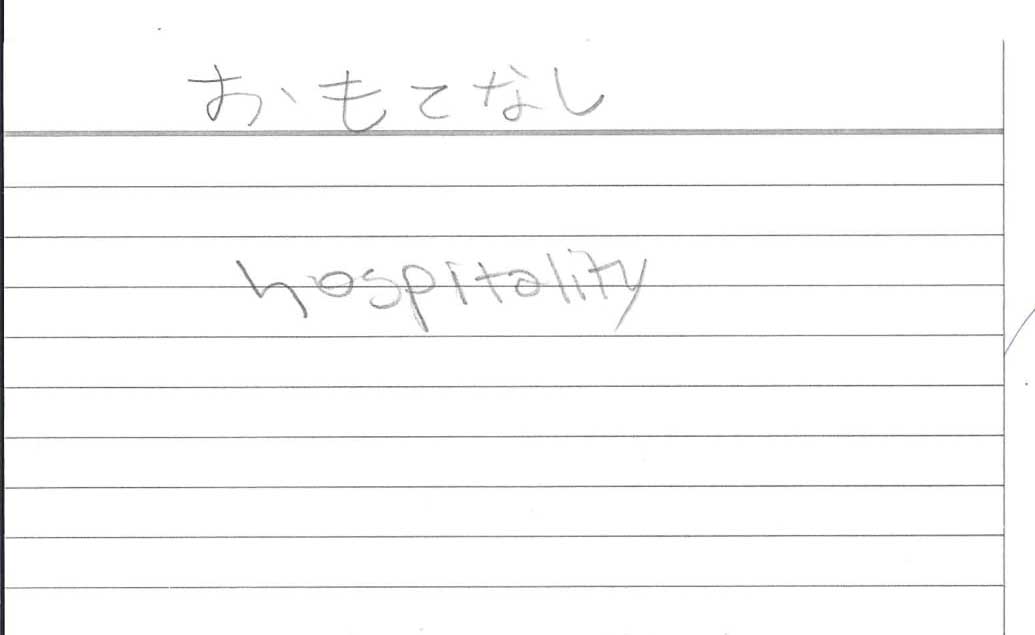 おもてなし
hospitality